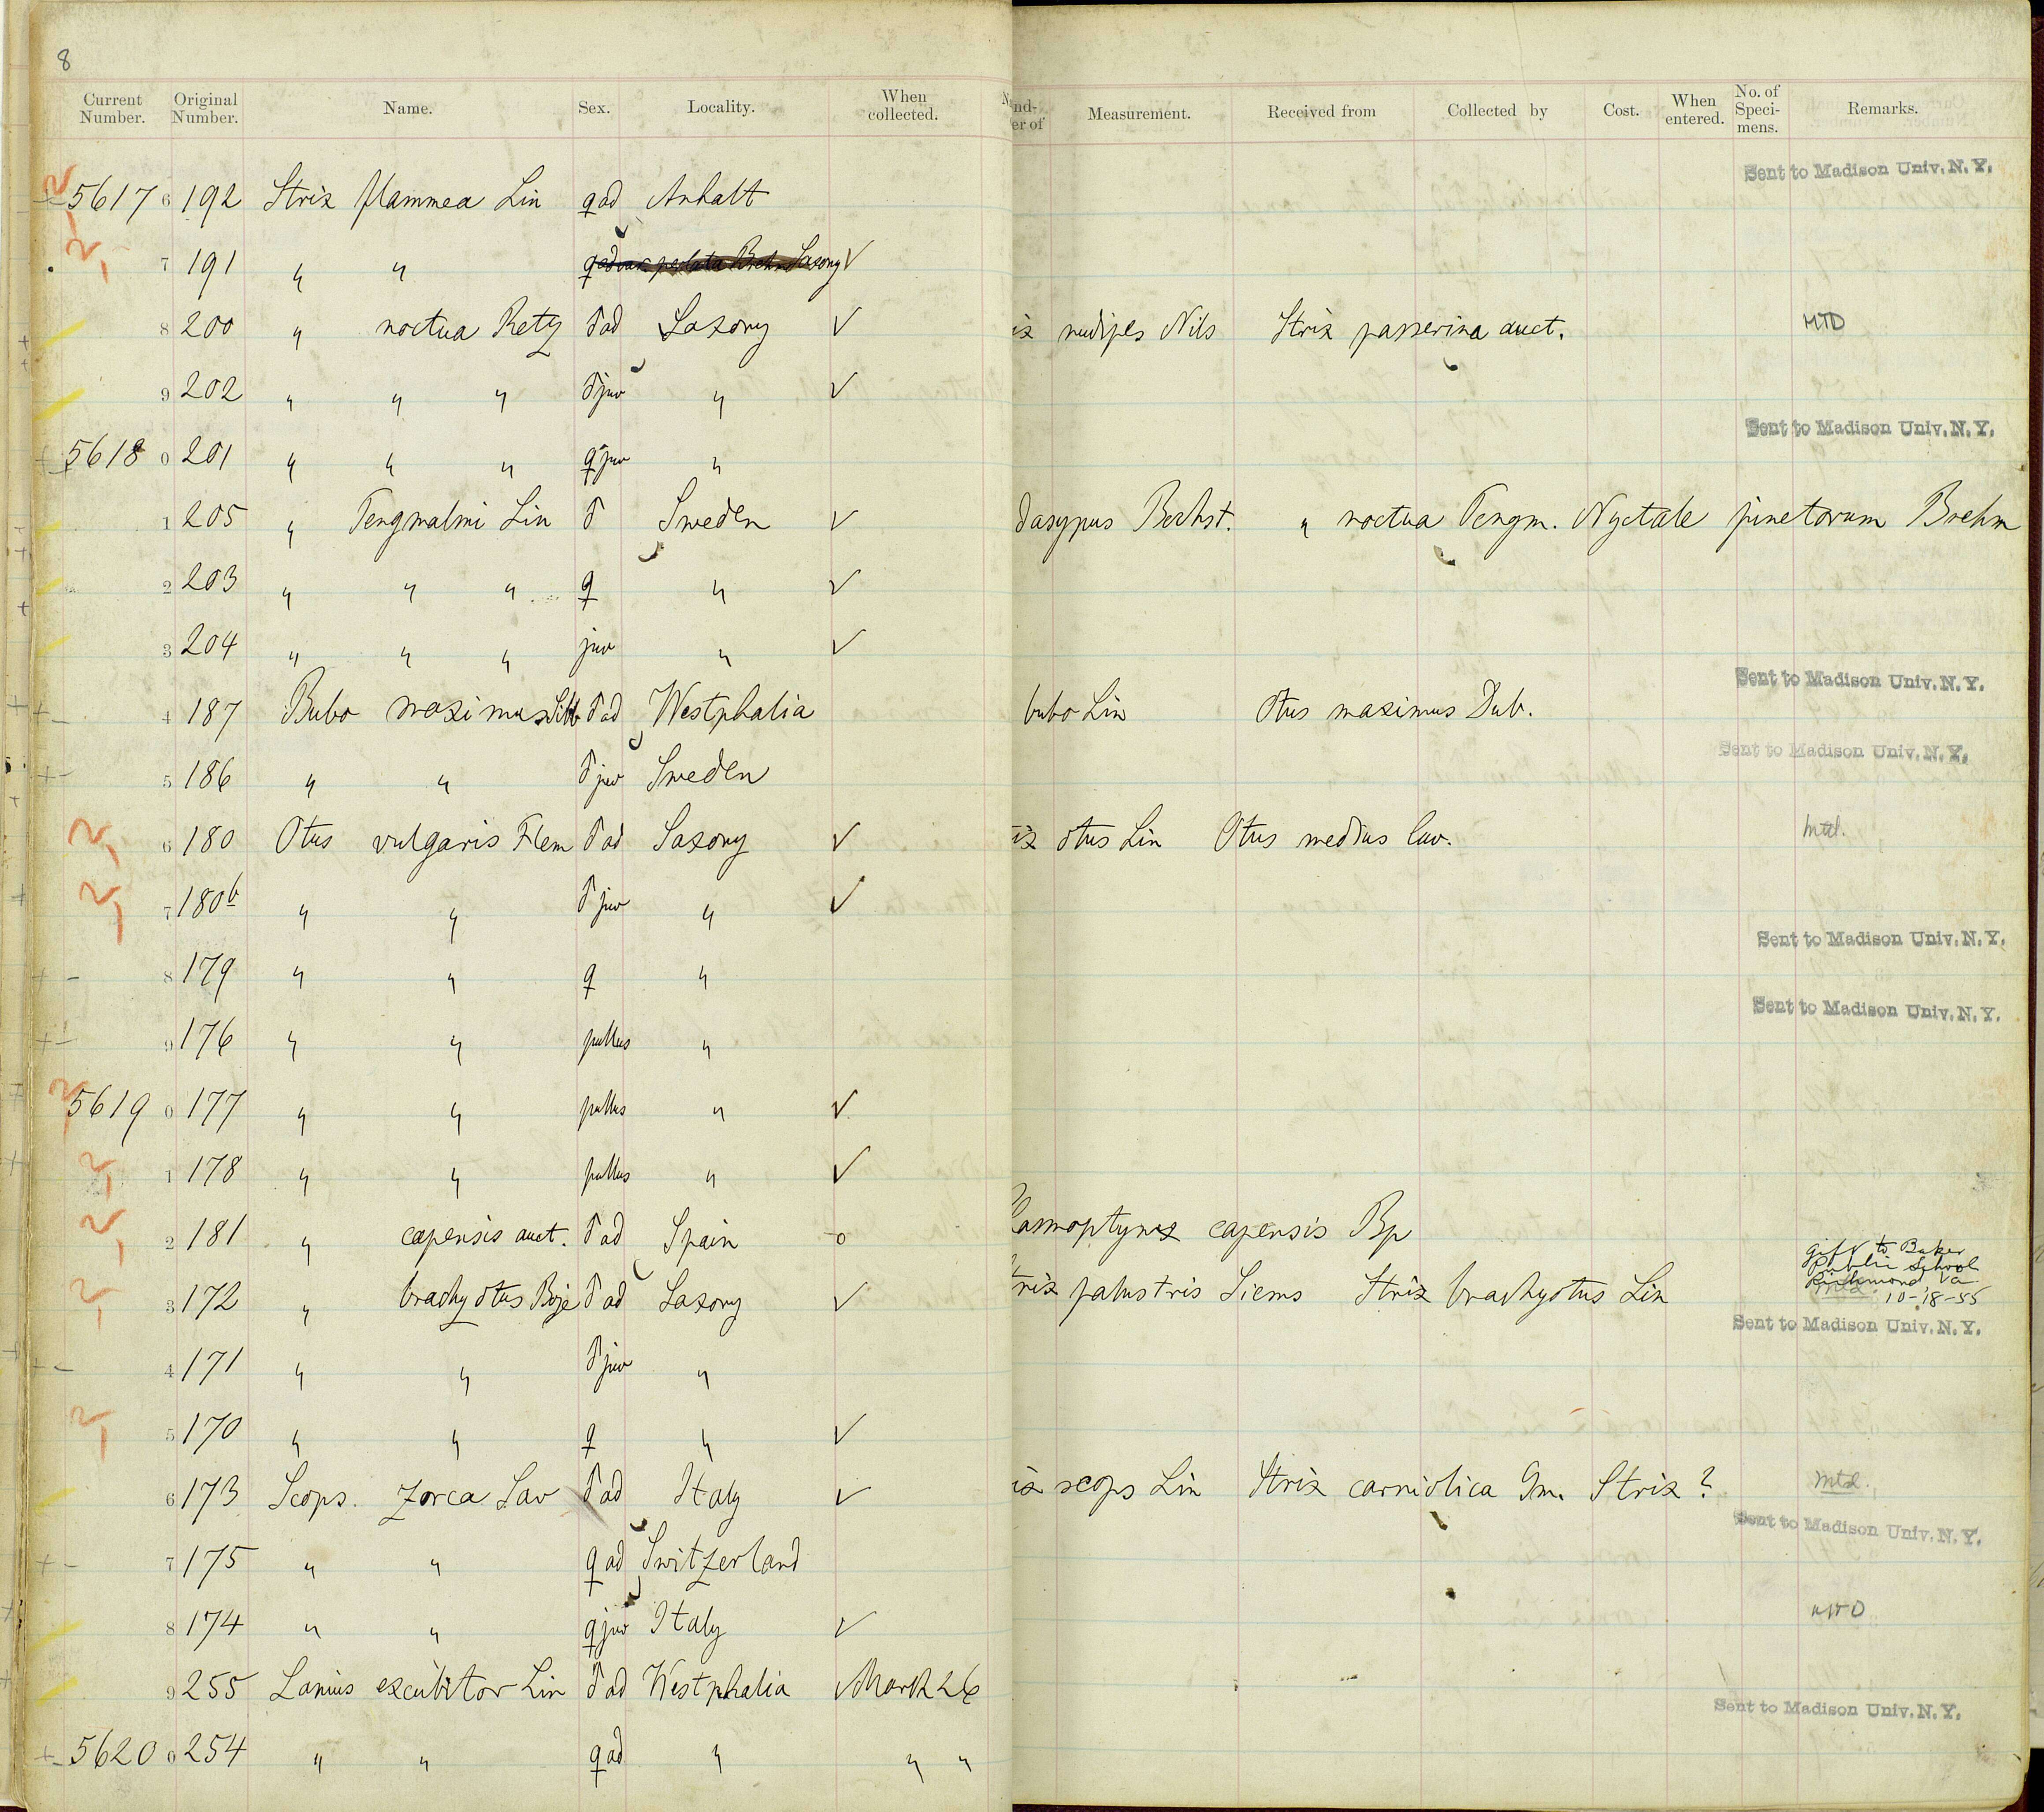 8
Current Number. Original Number. Name. Sex. Locality. When collected. nd- er of Measurement. Received from Collected by Cost. When entered. No. of Speci- mens. Remarks.
Sent to Madison Univ. N. Y.
5617 6 192 Strix flammea Lin ♀ ad Anhalt
7 191 〃 〃 ♀ ad var. Saxony ✓
8 200 〃 noctua Retz ♂ ad Saxony ✓ ix nudipes Nils Strix passerina auct. MTD
9 202 〃 〃 〃 ♂ juv 〃 ✓
Sent to Madison Univ. N. Y.
5618 0 201 〃 〃 〃 ♀ juv 〃
1 205 〃 Tengmalmi Lin ♂ Sweden ✓ dasypus Bechst. 〃 noctua Tengm. Nyctale pinetorum Brehm
2 203 〃 〃 〃 ♀ 〃 ✓
3 204 〃 〃 〃 juv 〃 ✓
Sent to Madison Univ. N. Y.
4 187 Bubo maximus Sibb ♂ ad Westphalia bubo Lin Otus maximus Dub.
Sent to Madison Univ. N. Y.
5 186 〃 〃 ♂ juv Sweden
6 180 Otus vulgaris Flem ♂ ad Saxony ✓ ix otus Lin Otus medius Cuv. Mtd.
7 180b 〃 〃 ♂ juv 〃 ✓
Sent to Madison Univ. N. Y.
8 179 〃 〃 ♀ 〃
Sent to Madison Univ. N. Y.
9 176 〃 〃 pullus 〃
5619 0 177 〃 〃 pullus 〃 ✓
1 178 〃 〃 pullus 〃 ✓
2 181 〃 capensis auct. ♂ ad Spain o capensis Bp
gift to Baker
Public School
Richmond Va
Mtd. 10-18-55
3 172 〃 brachyotus Boje ♂ ad Saxony ✓ trix palustris Siems Strix brachyotus Lin
Sent to Madison Univ. N. Y.
4 171 〃 〃 ♂ juv 〃
5 170 〃 〃 ♀ 〃 ✓
6 173 Scops. zorca Sav ♂ ad Italy ✓ ix scops Lin Strix carniolica Gm. Strix ? Mtd.
Sent to Madison Univ. N. Y.
7 175 〃 〃 ♀ ad Switzerland
8 174 〃 〃 ♀ juv Italy ✓ MTD
9 255 Lanius excubitor Lin ♂ ad Westphalia ✓ March 26
Sent to Madison Univ. N. Y.
5620 0 254 〃 〃 ♀ ad 〃 〃 〃